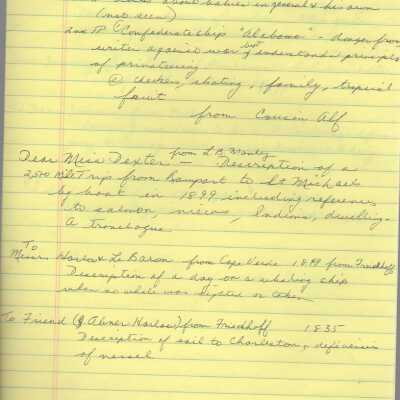 about babies in general & his own
(not seen)
2nd TP Confederate ship "Alabama" - danger from
writer against war but understands principles
of privateering
@ checkers, skating, family, tropical
fruit
from Cousin Alf
Dear Miss Dexter - from L B Manley Description of a
2,500 Mile Trip from Rampart to St Michaels
by boat in 1899 including references
to salmon, Indians, dwelling
A Travelogue
To
Messrs Harlow & Le Baron from Cape Verde 1849 from Friedhoff
Description of a day on a whaling ship
when no whale was sighted or taken
To Friend (J Abner Harlow) from Friedhoff 1835
Description of sail to Charleston, deficiencies
of vessel